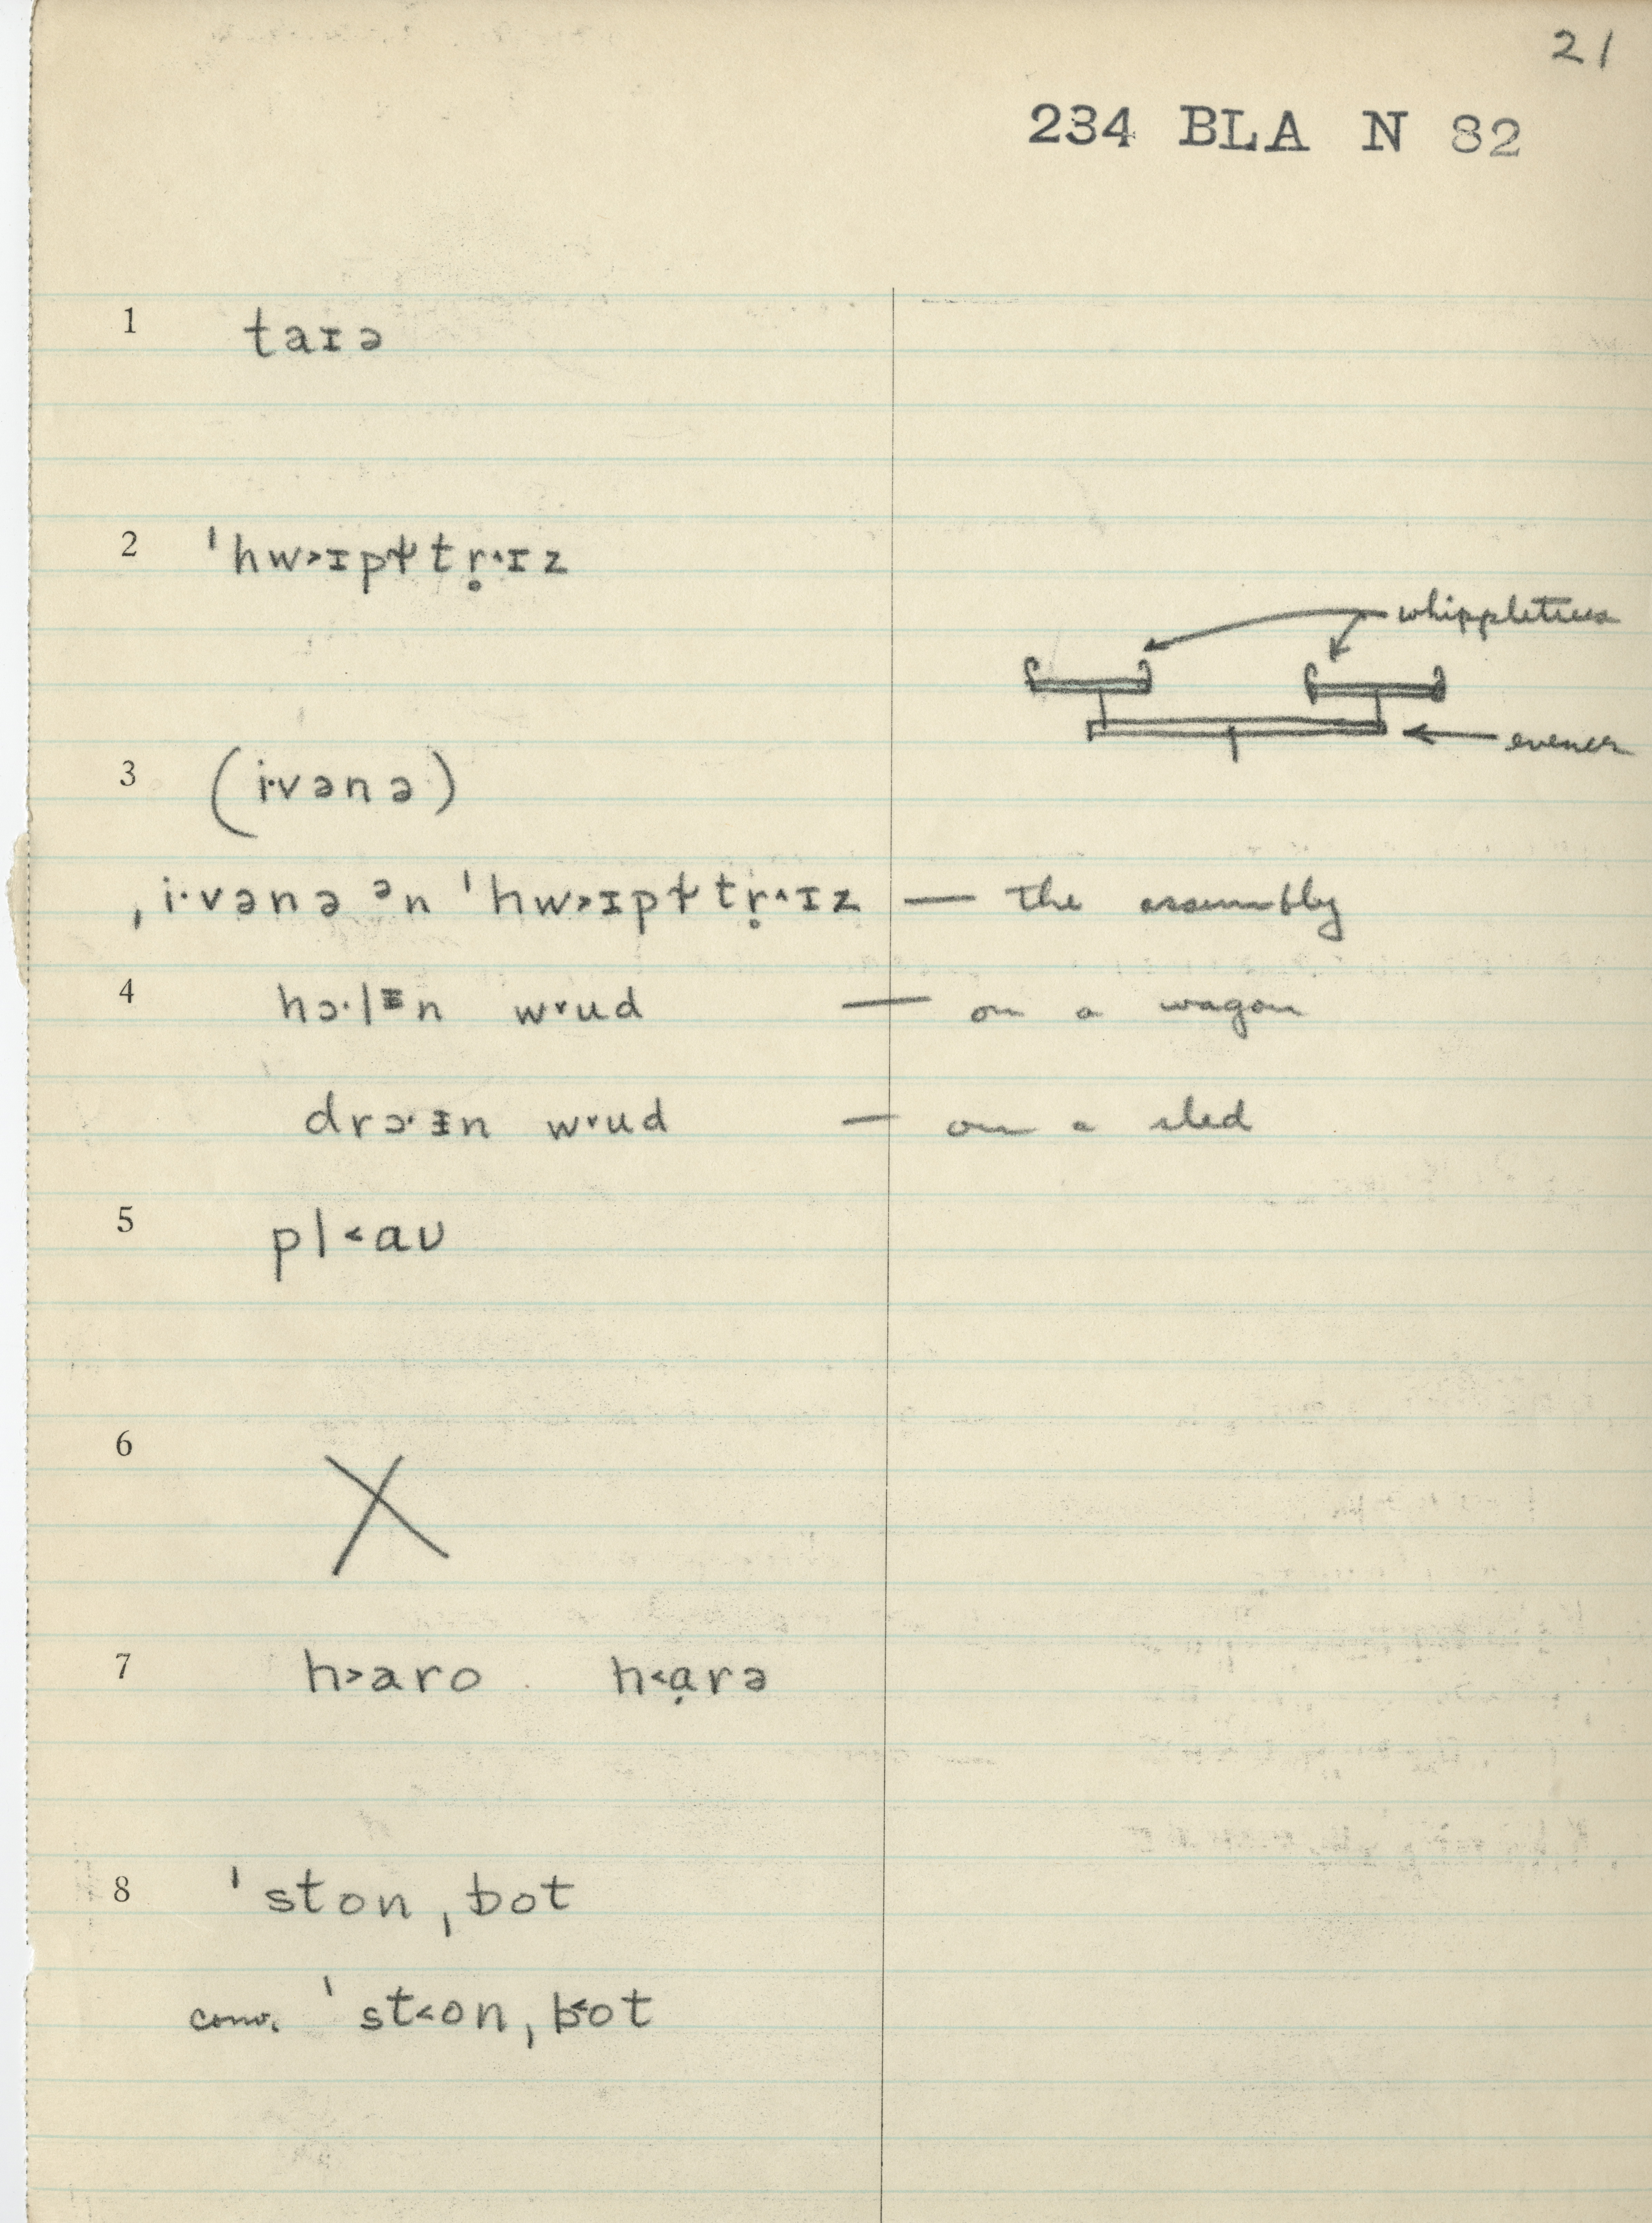 21
234 BLA N 82
1 taɪə
2 ˈhw˃ɪpɫtr̥˄ɪz
whippletrees
evener
3 (i·vənə)
ˌi·vənə ᵊn ˈhw˃ɪpɫtr̥˄ɪz — the assembly
4 hɔ·lᵻn w˅ud — on a wagon
drɔ·ᵻn w˅ud — on a sled
5 pl˂aʊ
6 X
7 h˃aro h˂ạrə
8 ˈston ˌbot
conv. ˈst˂on ˌb˂ot